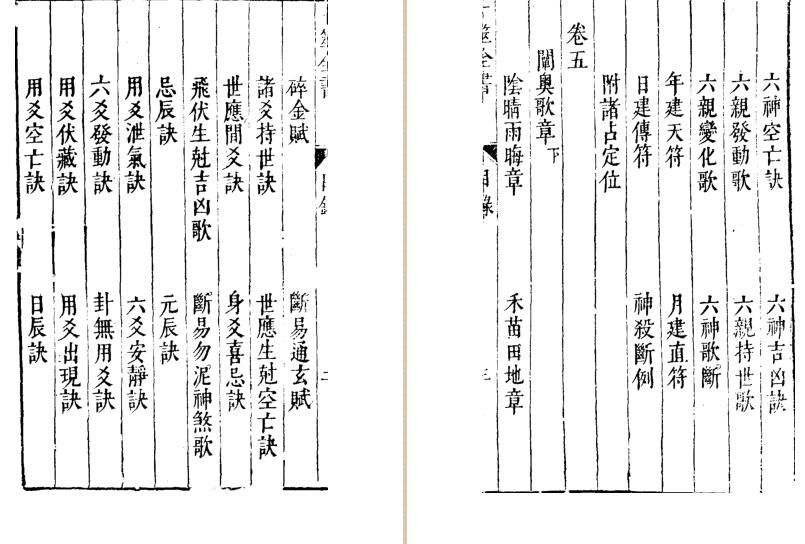 碎金賦 斷易通玄賦
諸爻持世訣 世應生尅空亡訣
世應間爻訣 身爻喜忌訣
飛伏生尅吉凶歌 斷易勿泥神煞歌
忌辰訣 元辰訣
用爻泄氣訣 六爻安靜訣
六爻發動訣 卦無用爻訣
用爻伏藏訣 用爻出現訣
用爻空亡訣 日辰訣
六神空亡訣 六神吉凶訣
六親發動歌 六親持世歌
六親變化歌 六神歌斷
年建天符 月建直符
日建傳符 神殺斷例
附諸占定位
卷五
闡奧歌章下
陰晴雨晦章 禾苗田地章